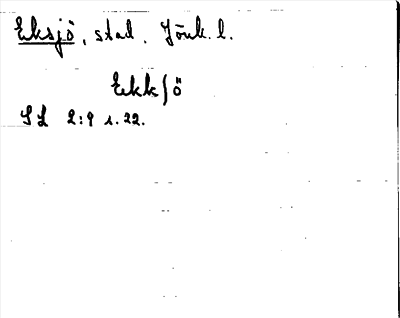 Eksjö, stad. Jönk. l.
Ekkſö
SL 2:9 s. 22.